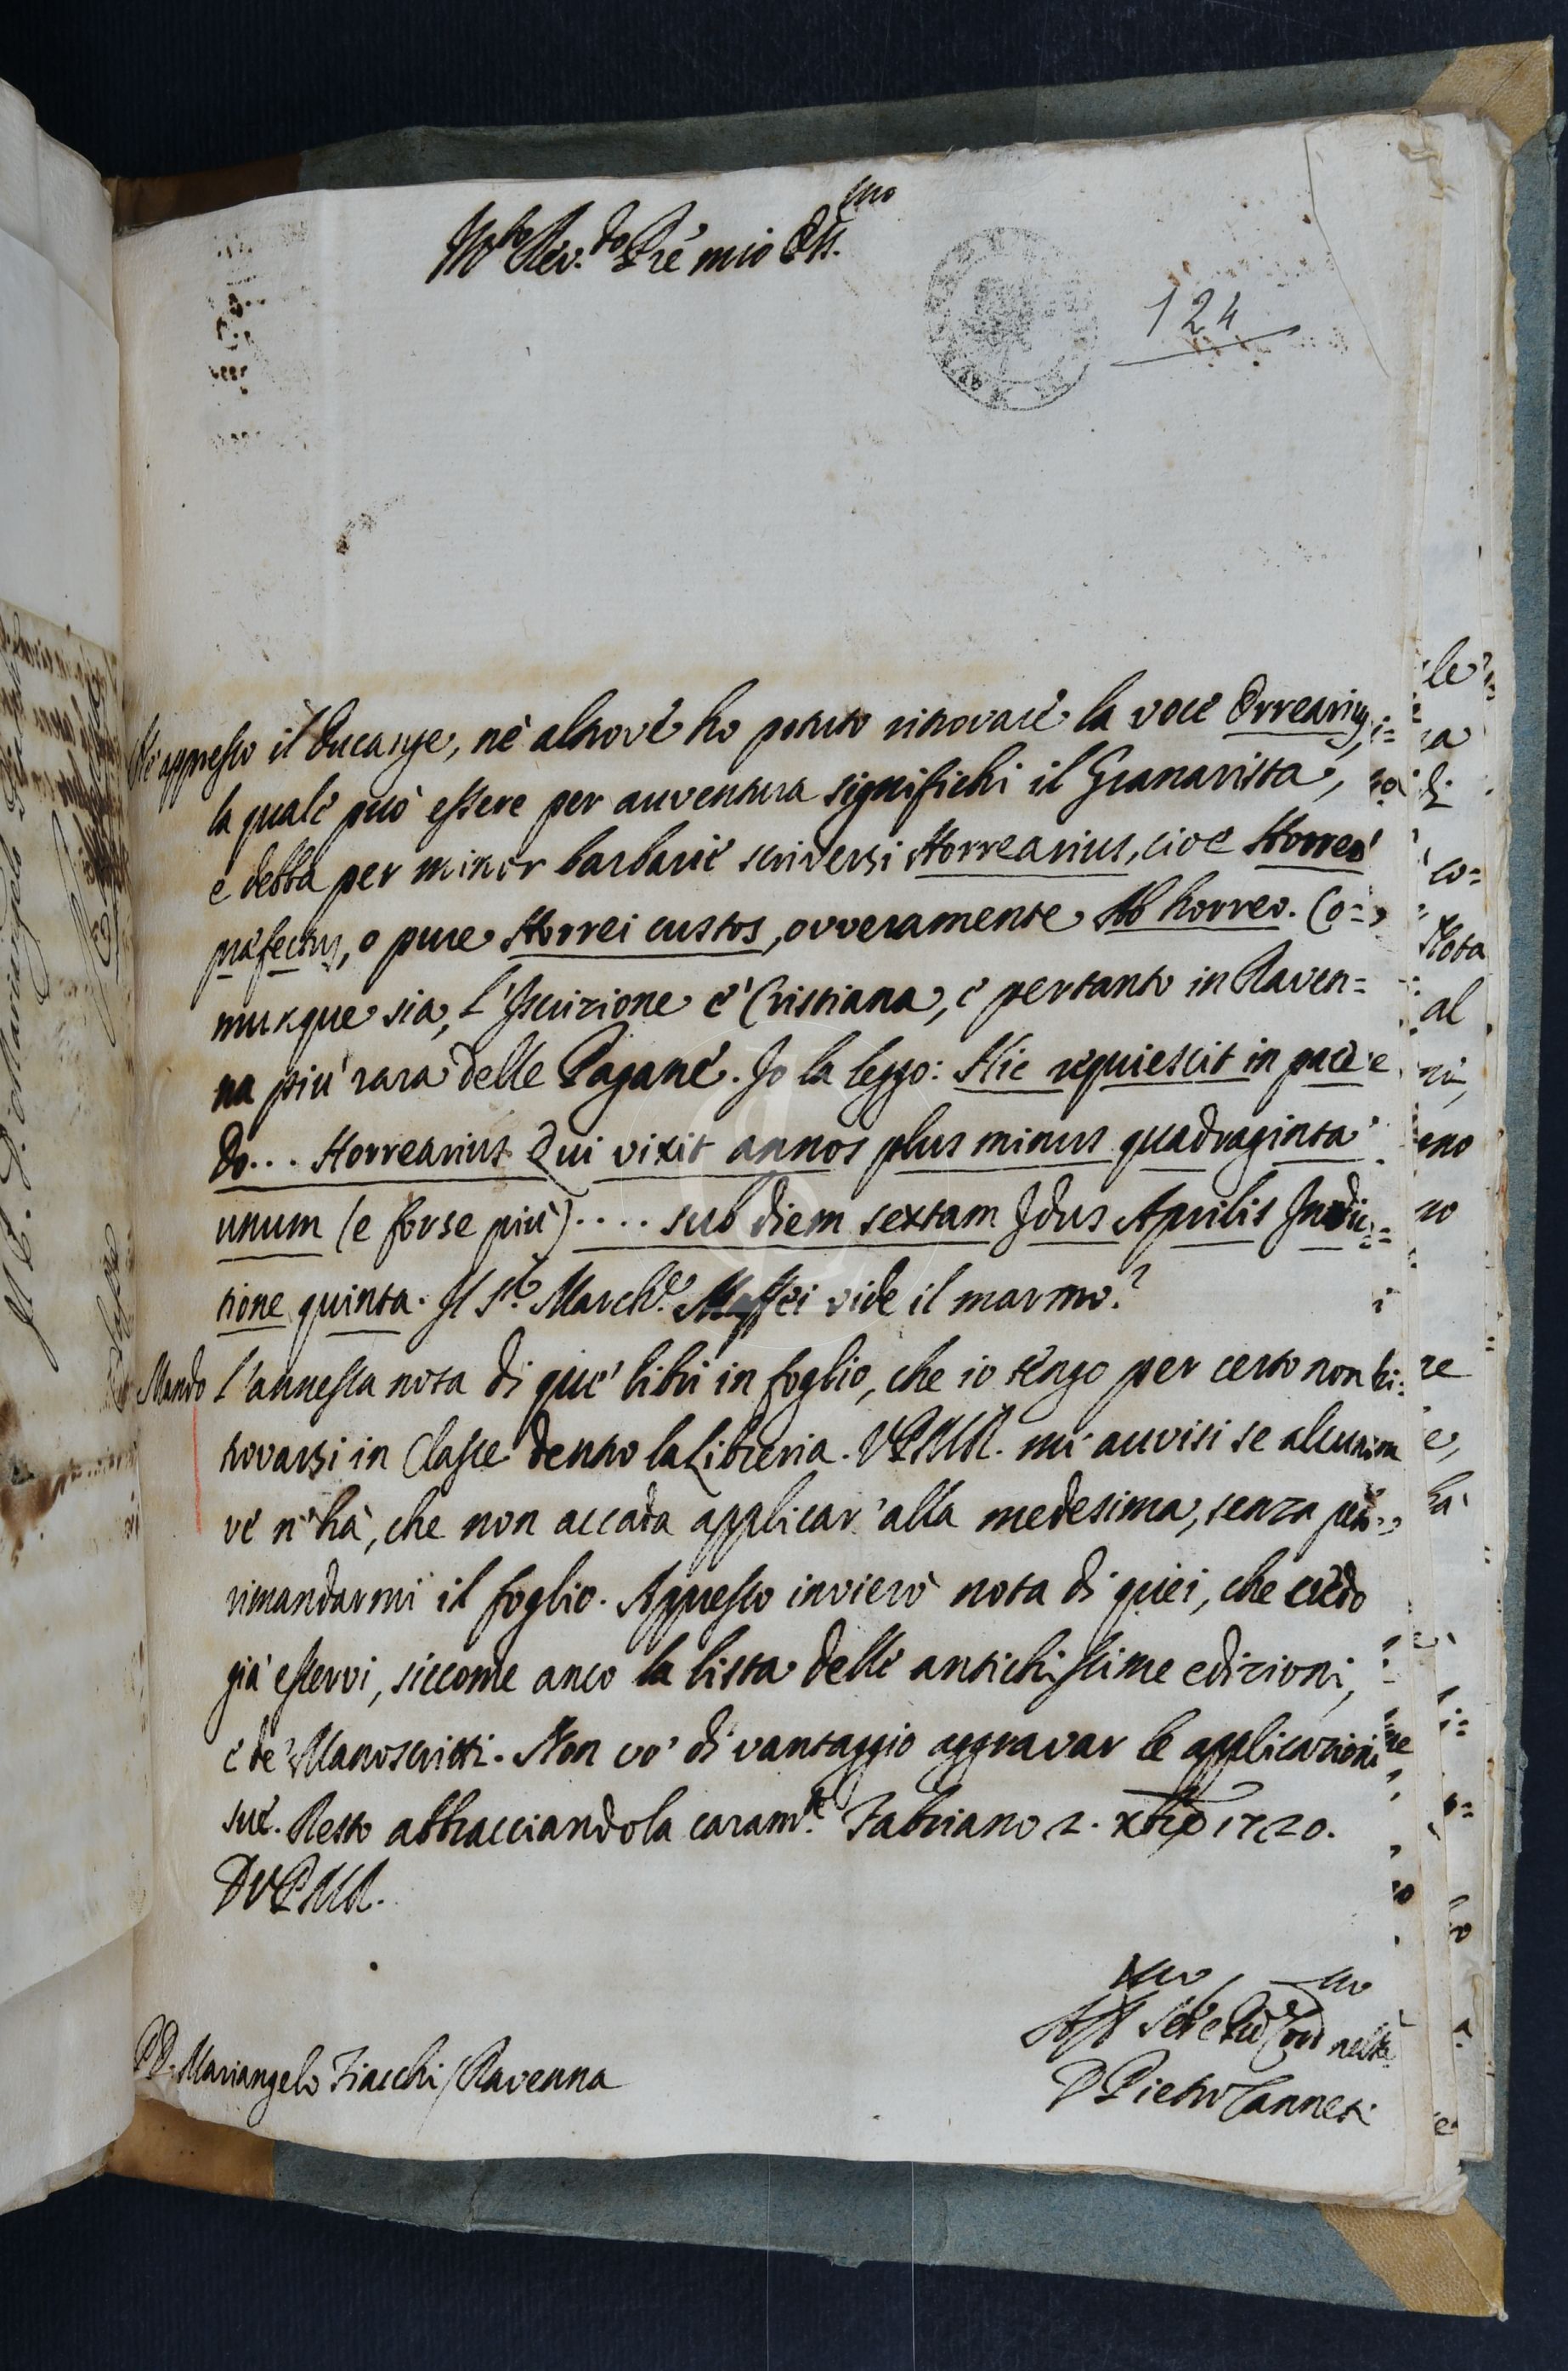 M.to Rev.do Pre mio Oss.mo
124
Nè appresso il Ducange, nè altrove ho potuto ritrovare la voce Orrearius,
la quale può essere per auventura significhi il Granarista,
e debba per minor barbarie scriversi Horrearius, cioè Horreo
præfectus, o pure Horrei custos, ovveramente Ab horreo. Co=
munque sia, l'Iscrizione è Cristiana, e pertanto in Raven=
na più rara delle Pagane. Io la leggo: Hic requiescit in pace
Do... Horrearius Qui vixit annos plus minus quadraginta
unum (e forse più).... sub diem sextam Idus Aprilis Indic=
tione quinta. Il S.r March.e Maffei vide il marmo?
Mando l'annessa nota di que' libri in foglio, che io tengo per certo non ri=
trovarsi in Classe dentro la Libreria. VPMR. mi auvisi se alcuno
ve n'hà, che non accada applicar'alla medesima, senza però
rimandarmi il foglio. Appresso invierò nota di quei, che credo
già esservi, siccome anco la lista delle antichissime edizioni,
e de' Manoscritti. Non vo' di vantaggio aggravar le applicazioni
sue. Resto abbracciandola caram.te Fabriano 2. xbre 1720.
DVPMR.
D Pietro Canneti
PD. Mariangelo Fiacchi / Ravenna